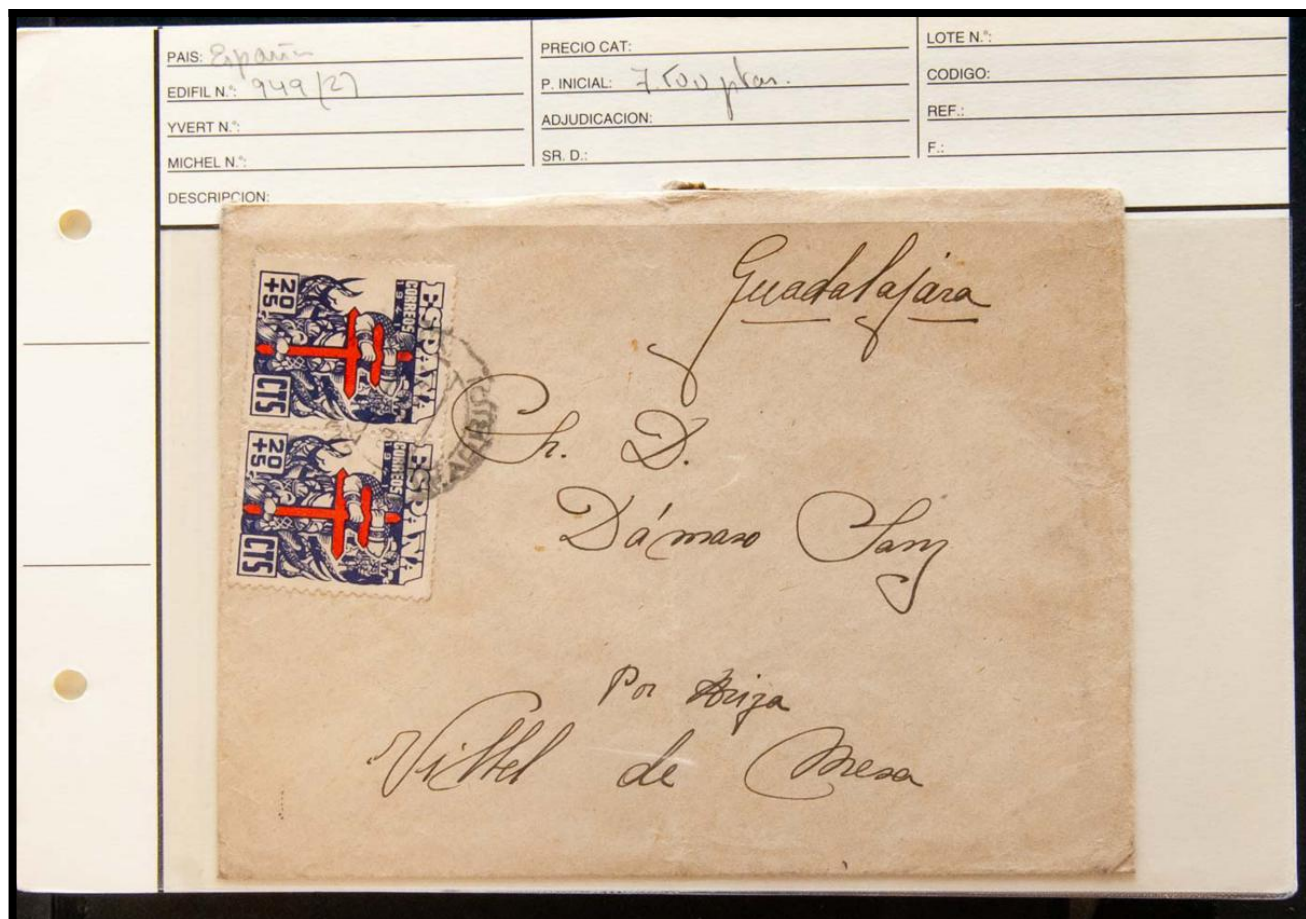 PAIS: España
EDIFIL N.º: 949/(2)
YVERT N.º:
MICHEL N.º:
DESCRIPCION:
PRECIO CAT:
P. INICIAL: 7.500 ptas.
ADJUDICACION:
SR. D.:
LOTE N.º:
CODIGO:
REF.:
F.:
ESPAÑA
CORREOS
1941
20
+5
CTS
ESPAÑA
CORREOS
1941
20
+5
CTS
Guadalajara
Sr. D.
Dámaso Sanz
Por Ariza
Villel de Mesa